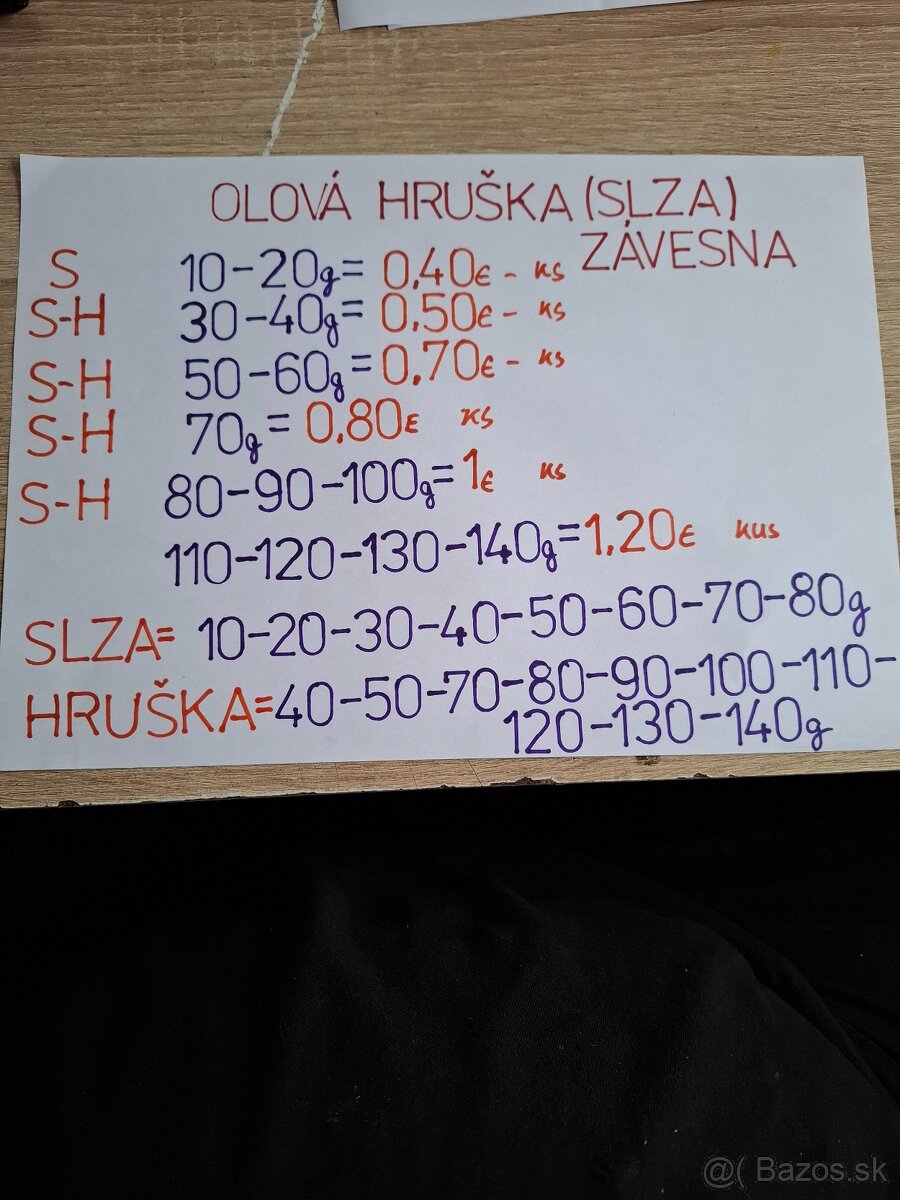 OLOVÁ HRUŠKA (SLZA)
ZÁVESNA
S 10-20g= 0,40€ - ks
S-H 30-40g= 0.50€ - ks
S-H 50-60g= 0,70€ - ks
S-H 70g= 0,80€ ks
S-H 80-90-100g= 1€ ks
110-120-130-140g= 1.20€ kus
SLZA= 10-20-30-40-50-60-70-80g
HRUŠKA= 40-50-70-80-90-100-110-
120-130-140g
@( Bazos.sk